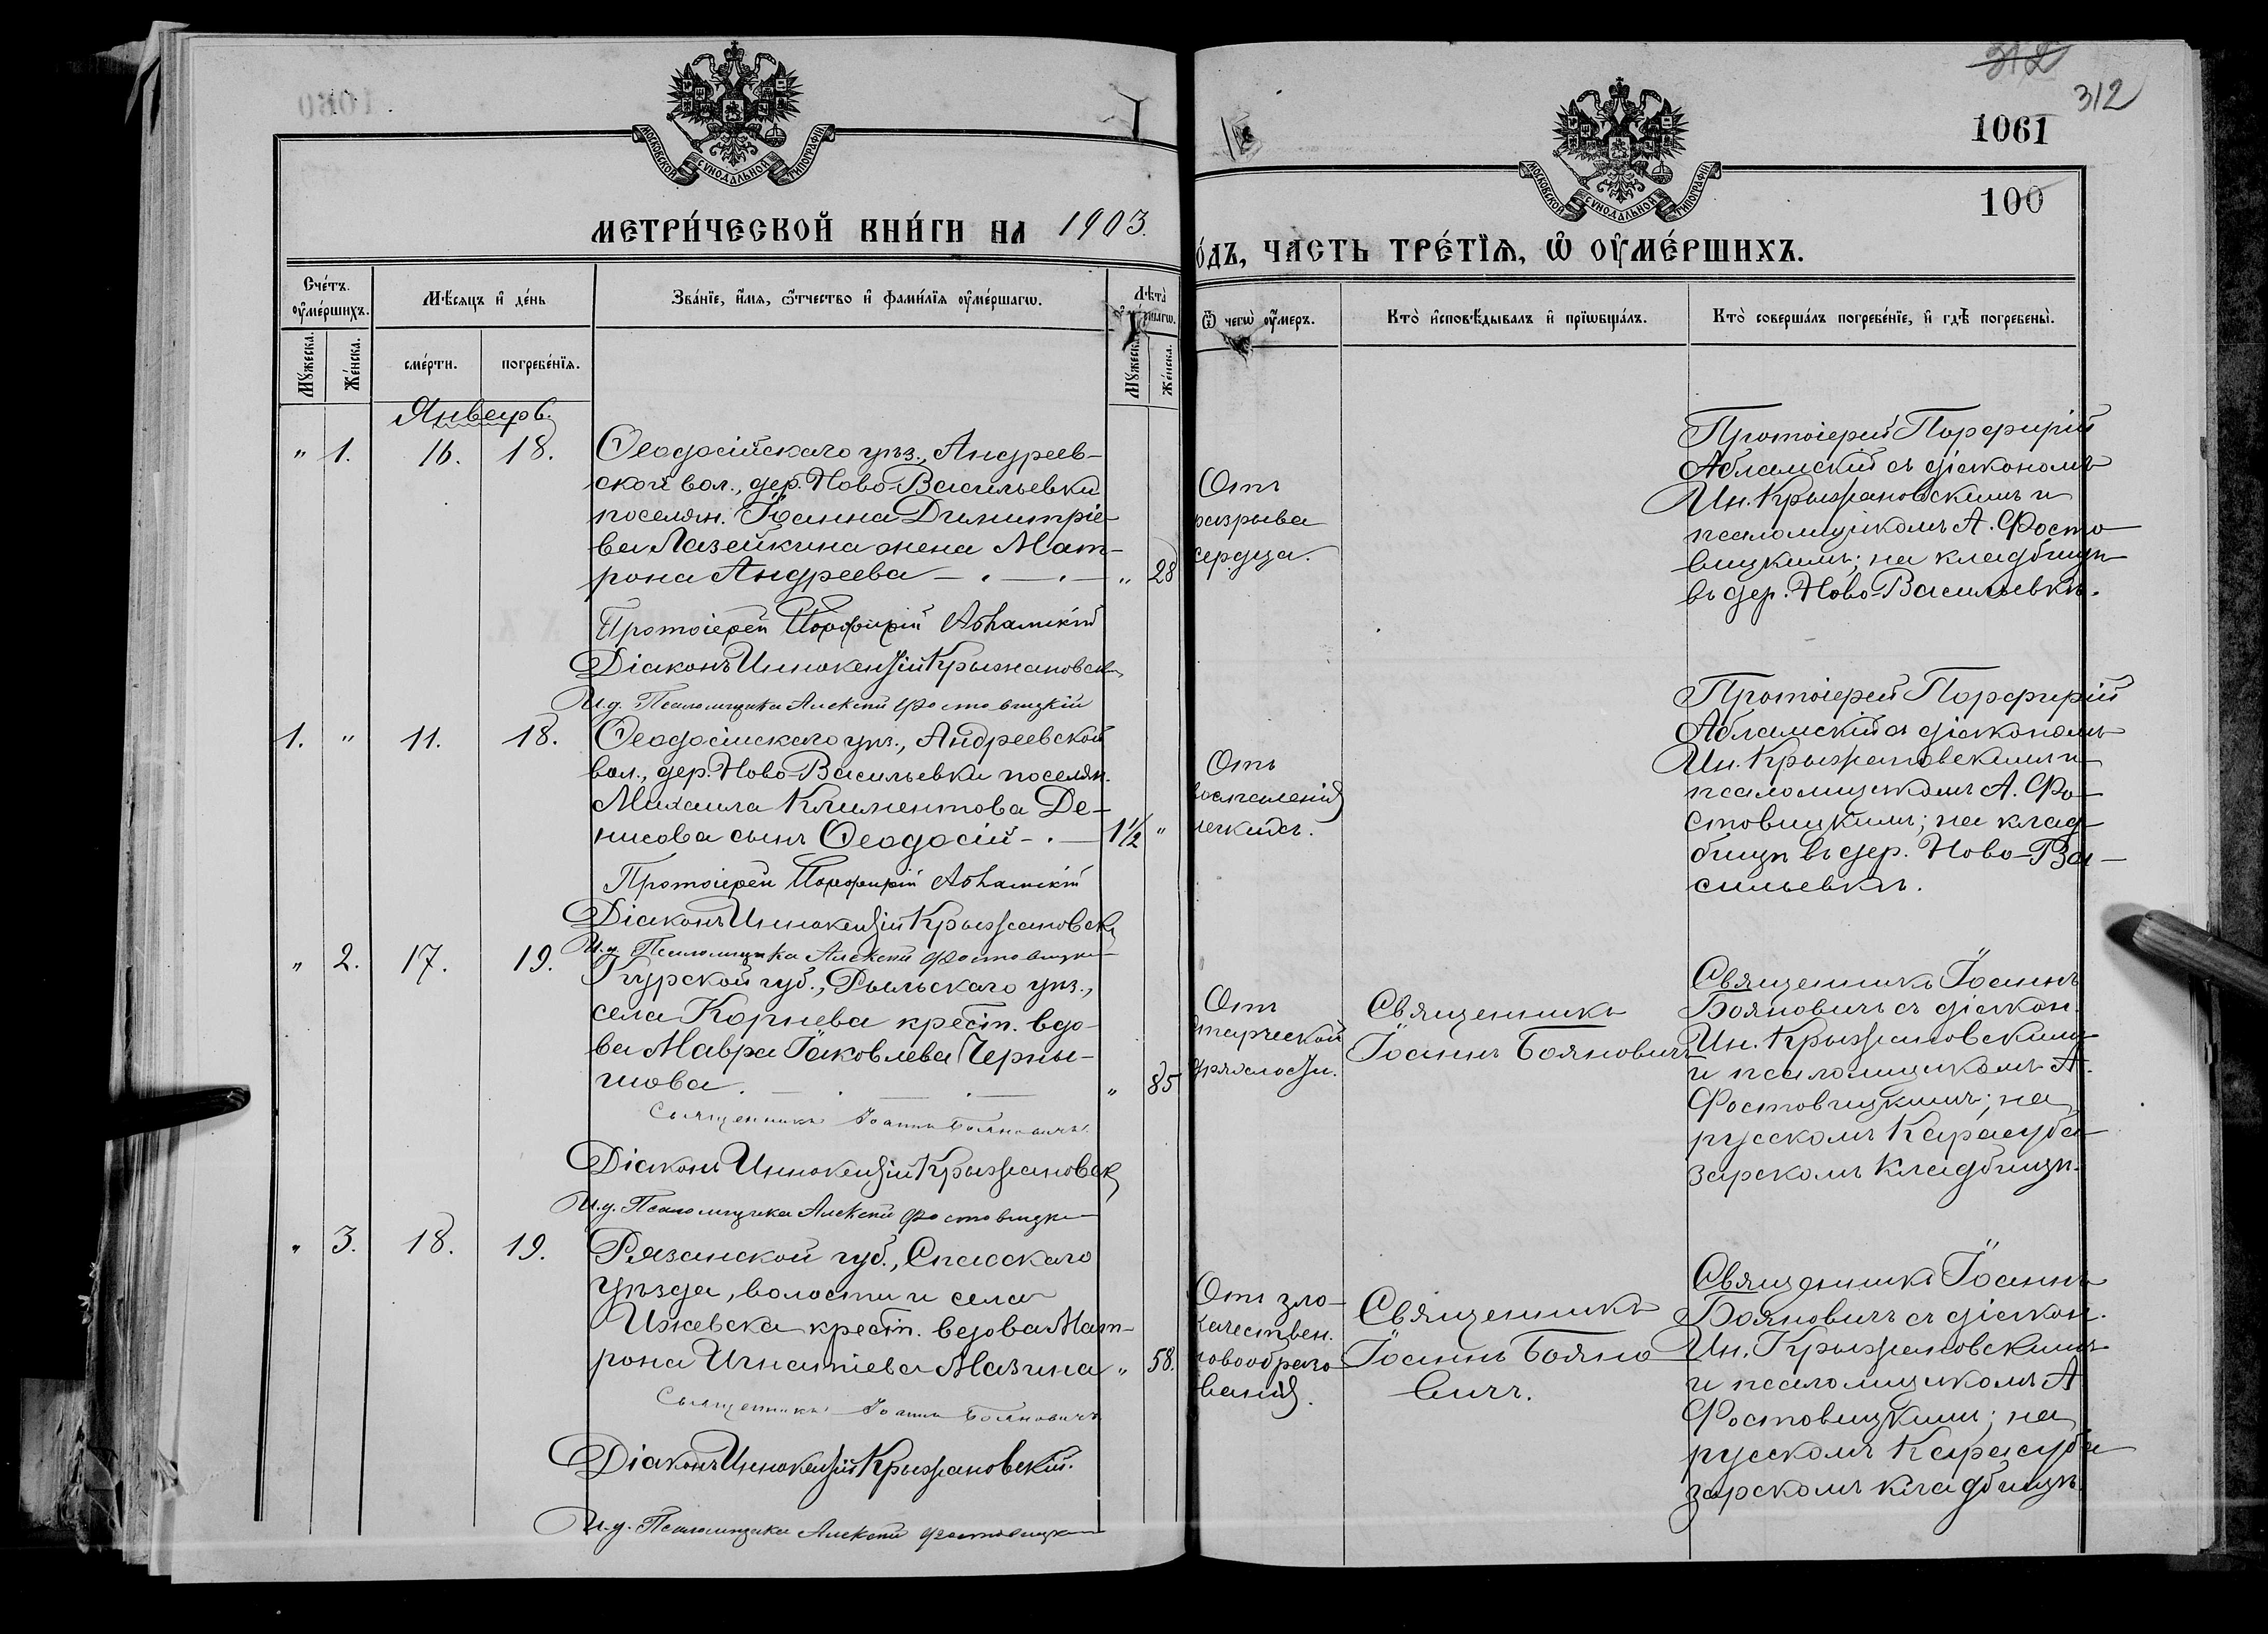 312
312
1061
100
МОСКОВСКОЙ СѴНОДАЛЬНОЙ ТИПОГРАФІИ
МОСКОВСКОЙ СѴНОДАЛЬНОЙ ТИПОГРАФІИ
МЕТРИ́ЧЕСКОЙ КНИ́ГИ НА 1903.
О́ДЪ, ЧАСТЬ ТРЕ́ТЇѦ, Ѡ̑ ОУ҆МЕ́РШИХЪ.
Сче́тъ оу҆ме́ршихъ.
Мѣ́сяцъ и҆ де́нь
Зва́нїе, и҆́мя, ѻ҆́тчество и҆ фами́лїя оу҆ме́ршагѡ.
Лѣта̀
Му́жеска.
Же́нска.
сме́рти.
погребе́нїя.
Му́жеска.
Же́нска.
Ѿ чегѡ̀ оу҆́меръ.
Кто̀ и҆сповѣ́дывалъ и҆ прїѡбща́лъ.
Кто̀ соверша́лъ погребе́нїе, и҆ гдѣ̀ погребены̀.
Январь.
" 1. 16. 18.
Ѳеодосійскаго уѣз., Андреев-
ской вол., дер. Ново-Васильевки
поселян. Іоанна Димитріе-
ва Лазейкина жена Мат-
рона Андреева " 28
Протоіерей Порфирій Абламскій
Діаконъ Иннокентій Крыжановск
И.д. Псаломщика Алексѣй Фостовицкій
Отъ
разрыва
сердца.
Протоіерей Порфирій
Абламскій съ діакономъ
Ин. Крыжановскимъ и
псаломщикомъ А. Фосто-
вицкимъ; на кладбищѣ
въ дер. Ново-Васильевкѣ.
1. " 11. 18.
Ѳеодосійскаго уѣз., Андреевской
вол., дер. Ново-Васильевки поселян.
Михаила Климентова Де-
нисова сынъ Ѳеодосій 1½ "
Протоіерей Порфирій Абламскій
Діаконъ Иннокентій Крыжановск
И.д. Псаломщика Алексѣй Фостовицкій
Отъ
воспаленія
легкихъ.
Протоіерей Порфирій
Абламскій съ діакономъ
Ин. Крыжановскимъ и
псаломщикомъ А. Фо-
стовицкимъ; на клад-
бищѣ въ дер. Ново-Ва-
сильевкѣ.
" 2. 17. 19.
Курской губ., Рыльскаго уѣз.,
села Корнева крест. вдо-
ва Мавра Іаковлева Черны-
шова " 85
Священникъ Іоаннъ Бояновичъ.
Діаконъ Иннокентій Крыжановск
И.д. Псаломщика Алексѣй Фостовицкій
Отъ
старческой
дряхлости.
Священникъ
Іоаннъ Бояновичъ
Священникъ Іоаннъ
Бояновичъ съ діакон.
Ин. Крыжановскимъ
и псаломщикомъ А.
Фостовицкимъ; на
русскомъ Карасуба-
зарскомъ кладбищѣ.
" 3. 18. 19.
Рязанской губ., Спасскаго
уѣзда, волости и села
Ижевска крест. вдова Мат-
рона Игнатіева Мазина " 58.
Священникъ Іоаннъ Бояновичъ
Діаконъ Иннокентій Крыжановскій.
И.д. Псаломщика Алексѣй Фостовицкій
Отъ зло-
качествен.
новообразо-
ванія.
Священникъ
Іоаннъ Бояно
вичъ.
Священникъ Іоаннъ
Бояновичъ съ діакон.
Ин. Крыжановскимъ
и псаломщикомъ А
Фостовицкимъ; на
русскомъ Карасуба
зарскомъ кладбищѣ.